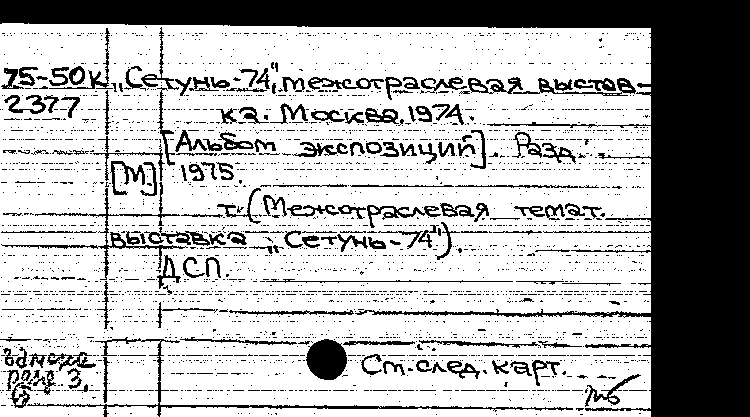 75-50к „Сетунь-74", межотраслевая выстав-
2377 ка. Москва. 1974.
[Альбом экспозиций]. Разд.
[М.] 1975.
т. (Межотраслевая темат.
выставка „Сетунь-74").
ДСП.
разд 3. См. след. карт.